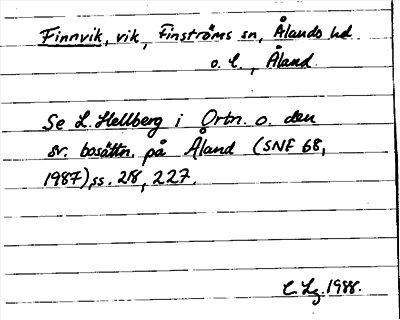 Finnvik, vik, Finströms sn, Ålands hd
o. l., Åland
Se L. Hellberg i Ortn. o. den
sv. bosättn. på Åland (SNF 68,
1987), ss. 218, 227.
C. Lg. 1988.